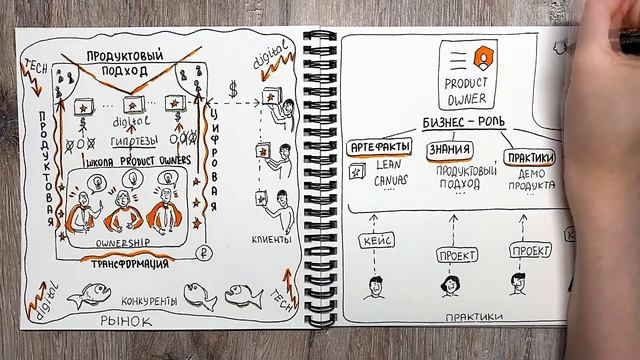 ПРОДУКТОВЫЙ
ПОДХОД
TECH
digital
$
digital
ГИПОТЕЗЫ
ПРОДУКТОВАЯ
ЦИФРОВАЯ
ШКОЛА PRODUCT OWNERS
OWNERSHIP
ТРАНСФОРМАЦИЯ
₽
КЛИЕНТЫ
digital
КОНКУРЕНТЫ
TECH
РЫНОК
PRODUCT
OWNER
БИЗНЕС - РОЛЬ
АРТЕФАКТЫ
LEAN
CANVAS
...
ЗНАНИЯ
ПРОДУКТОВЫЙ
ПОДХОД
...
ПРАКТИКИ
ДЕМО
ПРОДУКТА
...
КЕЙС
ПРОЕКТ
ПРОЕКТ
ПРАКТИКИ